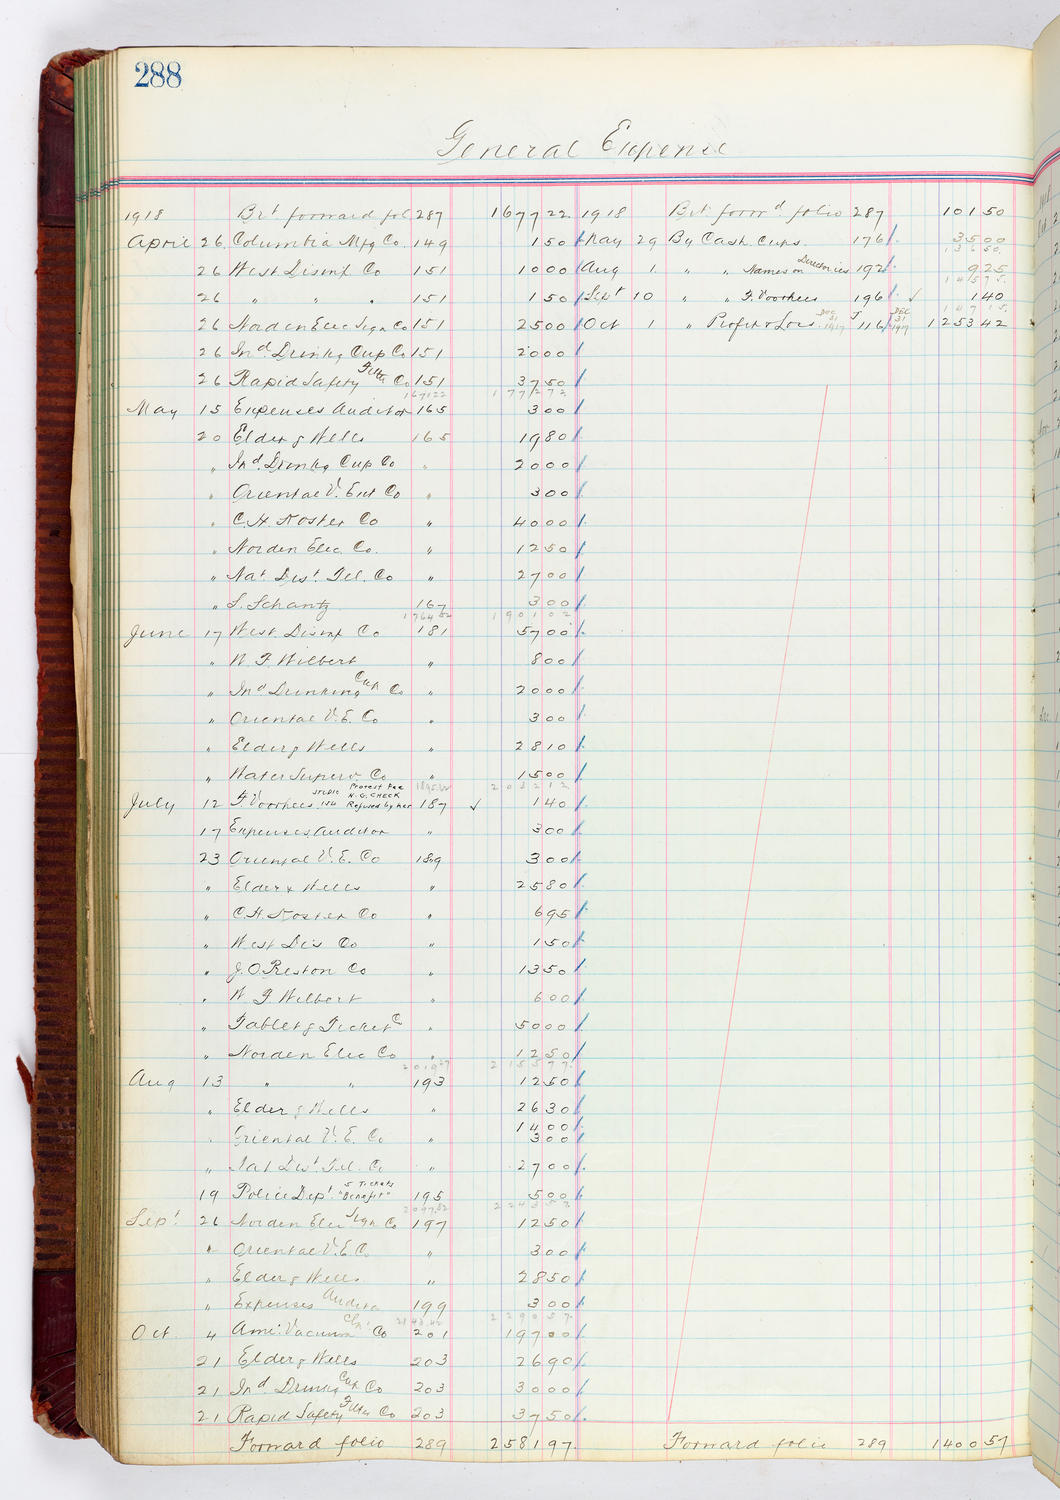 288
General Expense
1918 Brt forward fol 287 1677 22 1918 Brt forwd folio 287 101 50
April 26 Columbia Mfg Co. 149 1 50 May 29 By Cash Cups 176 35 00
136 50
26 West Disinf Co 151 10 00 Aug 1 " " Names on Directories 192 9 25
145 75
26 " " " 151 1 50 Sept 10 " " F. Voorhees 196 ✓ 1 40
147 15
26 Norden Elec Sign Co 151 25 00 Oct 1 " Profit & Loss DEC 31 1917 J 116 DEC 31 1917 1253 42
26 Ind Drinkg Cup Co 151 20 00
26 Rapid Safety Filter Co 151 37 50
1671 22 1772 72
May 15 Expenses Auditor 165 3 00
20 Elder & Wells 165 19 80
" Ind. Drinkg Cup Co " 20 00
" Oriental V. Ent Co " 3 00
" C. H. Koster Co " 40 00
" Norden Elec. Co. " 12 50
" Nat Dist. Tel. Co " 27 00
" S. Schantz 167 3 00
1764 52 1901 02
June 17 West. Disinf Co 181 57 00
" W. F. Wilbert " 8 00
" Ind Drinking Cup Co " 20 00
" Oriental V. E. Co " 3 00
" Elder & Wells " 28 10
" Water Superv. Co " 15 00
2032 12
July 12 F. Voorhees Protest Fee N.G. CHECK Refused by her 187 ✓ 1 40
17 Expenses Auditor " 3 00
23 Oriental V. E. Co 189 3 00
" Elder & Wells " 25 80
" C. H. Koster Co " 6 95
" West Dis Co " 1 50
" J. O. Preston Co " 13 50
" W. F. Wilbert " 6 00
" Tablet & Ticket C " 50 00
" Norden Elec Co " 12 50
2155 77
Aug 13 " " 193 12 50
" Elder & Wells " 26 30
14 00
" Oriental V. E. Co " 3 00
" Nat Dist. Tel. Co " 27 00
19 Police Dept. 5 Tickets "Benefit" 195 5 00
2097 82
Sept 26 Norden Elec Sign Co 197 12 50
" Oriental V. E. C. " 3 00
" Elder & Wells " 28 50
" Expenses Auditor 199 3 00
2290 57
Oct. 4 Ame. Vacuum Cln. Co 201 197 00
21 Elder & Wells 203 26 90
21 Ind Drinkg Cup Co 203 30 00
21 Rapid Safety Filter Co 203 37 50
Forward folio 289 2581 97 Forward folio 289 1400 57